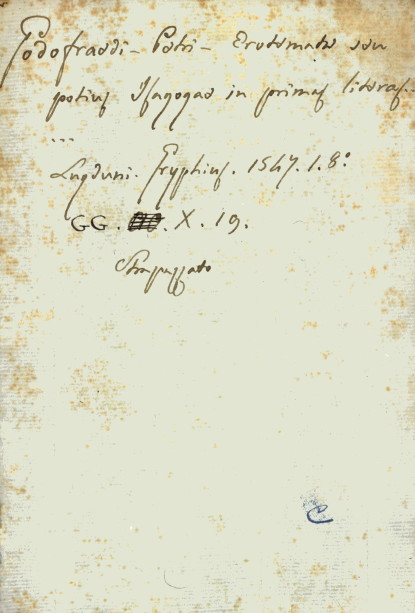 Godofraedi - Petri - Erotemata seu
potius Isagogae in primas literas..
...
Lugduni. Gryphius. 1547. 1. 8°
GG. X. 19.
Strapazzato
C